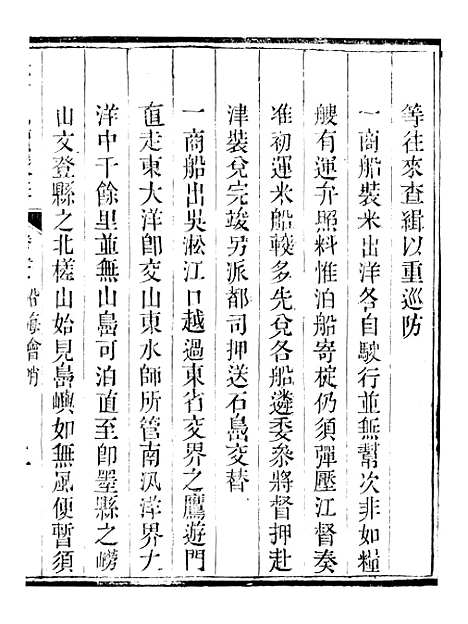 等往來查緝以重巡防
一商船裝米出洋各自駛行並無幫次非如糧
艘有運弁照料惟泊船寄椗仍須彈壓江督奏
准初運米船較多先兌各船遴委叅將督押赴
津裝兌完竣另派都司押送石島交替
一商船出吳淞江口越過東省交界之鷹遊門
直走東大洋卽交山東水師所管南汛洋界大
洋中千餘里並無山島可泊直至卽墨縣之嶗
山文登縣之北槎山始見島嶼如無風便暫須
沿海會哨